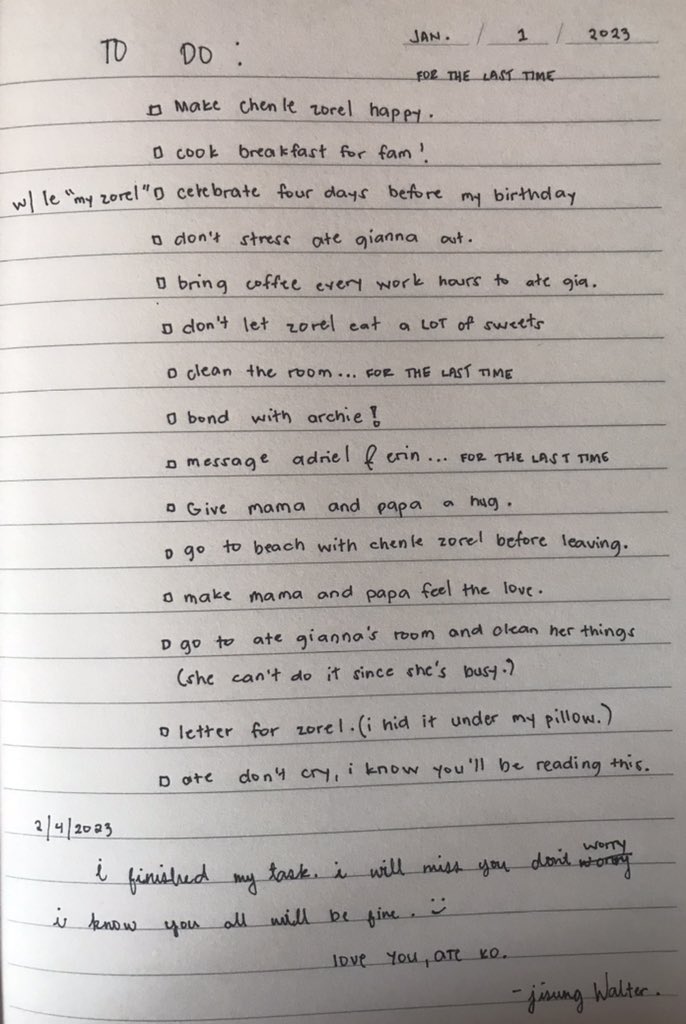 TO DO :
JAN. / 1 / 2023
FOR THE LAST TIME
Make chenle zorel happy.
cook breakfast for fam!
w/ le "my zorel" celebrate four days before my birthday
don't stress ate gianna out.
bring coffee every work hours to ate gia.
don't let zorel eat a LOT of sweets
clean the room... FOR THE LAST TIME
bond with archie!
message adriel & erin... FOR THE LAST TIME
Give mama and papa a hug.
go to beach with chenle zorel before leaving.
make mama and papa feel the love.
go to ate gianna's room and clean her things
(she can't do it since she's busy.)
letter for zorel. (i hid it under my pillow.)
ate don't cry, i know you'll be reading this.
2/4/2023
i finished my task. i will miss you don't worry
i know you all will be fine. :)
love you, ate ko.
- jisung Walter.